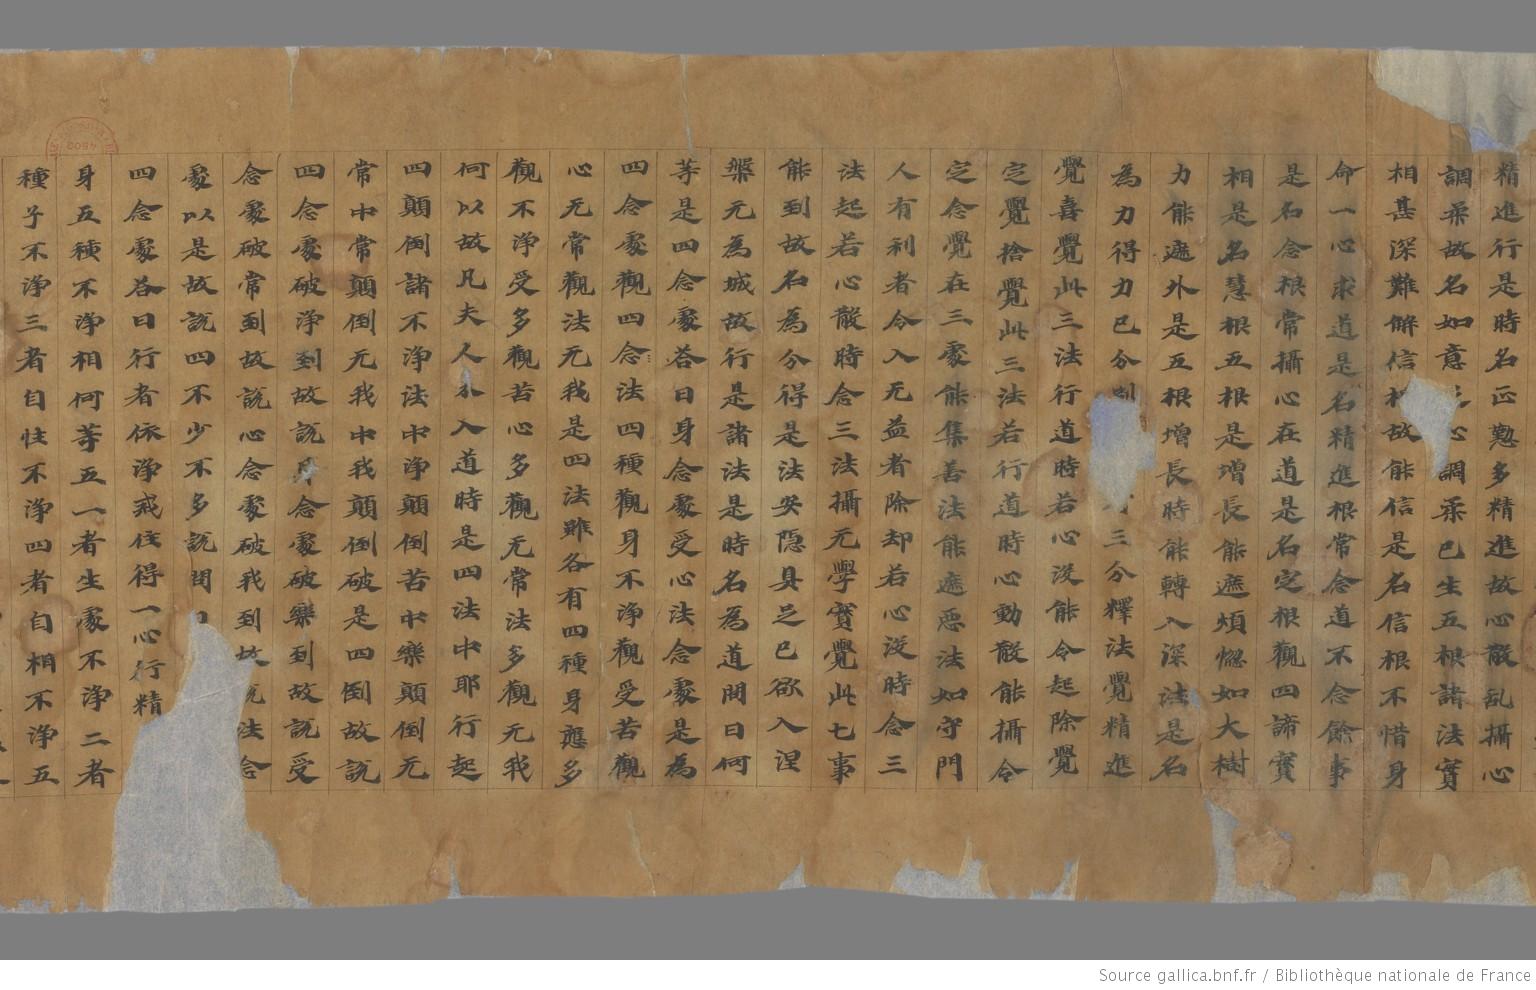 精進行是時名正懃多精進故心散乱攝心
調柔故名如意心調柔已生五根諸法實
相甚深難解信根故能信是名信根不惜身
命一心求道是名精進根常念道不念餘事
是名念根常攝心在道是名定根觀四諦實
相是名慧根五根是增長能遮煩惱如大樹
力能遮外是五根增長時能轉入深法是名
為力得力已分別三分釋法覺精進
覺喜覺此三法行道時若心没能令起除覺
定覺捨覺此三法若行道時心動散能攝令
定念覺在三處能集善法能遮惡法如守門
人有利者令入无益者除却若心没時念三
法起若心散時念三法攝无學實覺此七事
能到故名為分得是法安隐具足已欲入涅
槃无為城故行是諸法是時名為道問曰何
等是四念處荅曰身念處受心法念處是為
四念處觀四念法四種觀身不淨觀受苦觀
心无常觀法无我是四法雖各有四種身應多
觀不淨受多觀苦心多觀无常法多觀无我
何以故凡夫人未入道時是四法中耶行起
四顛倒諸不淨法中淨顛倒苦中樂顛倒无
常中常顛倒无我中我顛倒破是四倒故説
四念處破淨到故説身念處破樂到故説受
念處破常到故説心念處破我到故説法念
處以是故説四不少不多説問
四念處荅曰行者依淨戒住得一心行精
身五種不淨相何等五一者生處不淨二者
種子不淨三者自性不淨四者自相不淨五
4502
Source gallica.bnf.fr / Bibliothèque nationale de France